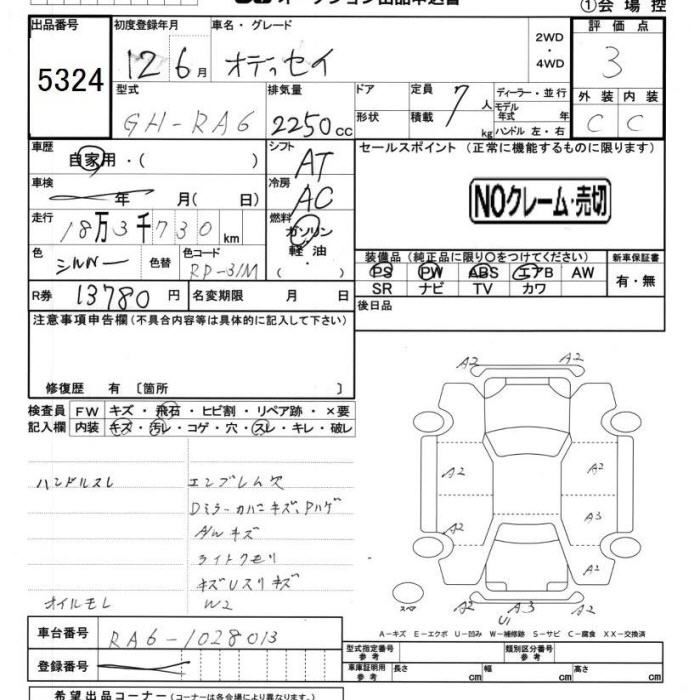 ①会場控
出品番号 初度登録年月 車名・グレード 2WD・4WD 評価点
5324 12年6月 オデッセイ 3
型式 排気量 ドア 定員 7人 ディーラー・並行 外装 内装
GH-RA6 2250cc 形状 積載 kg モデル年式 年式 ハンドル 左・右 C C
車歴 自家用・( ) シフト AT セールスポイント (正常に機能するものに限ります)
車検 年 月( 日) 冷房 AC NOクレーム・売切
走行 18万3千730km 燃料 ガソリン 軽油 ( )
色 シルバー 色替 色コード RP-31M 装備品(純正品に限り○をつけてください) 新車保証書
PS PW ABS エアB AW 有・無
SR ナビ TV カワ
R券 13780円 名変期限 月 日 後日品
注意事項申告欄(不具合内容等は具体的に記入して下さい)
修復歴 有 〔箇所 〕
検査員 FW キズ・飛石・ヒビ割・リペア跡・×要
記入欄 内装 キズ・汚レ・コゲ・穴・スレ・キレ・破レ
ハンドルスレ エンブレム欠
Dミラーカバーキズ、Pハゲ
A/Wキズ
ライトクモリ
キズUスリキズ
オイルモレ W2
A2 A2
A2 A2
A2 A3
A2
スペア A2 U1 A3 A2
A-キズ E-エクボ U-凹み W-補修跡 S-サビ C-腐食 XX-交換済
車台番号 RA6-1028013
型式指定番号 参考 類別区分番号 参考
登録番号
車庫証明用 参考 長さ cm 幅 cm 高さ cm
希望出品コーナー(コーナーは各会場により異なります。)